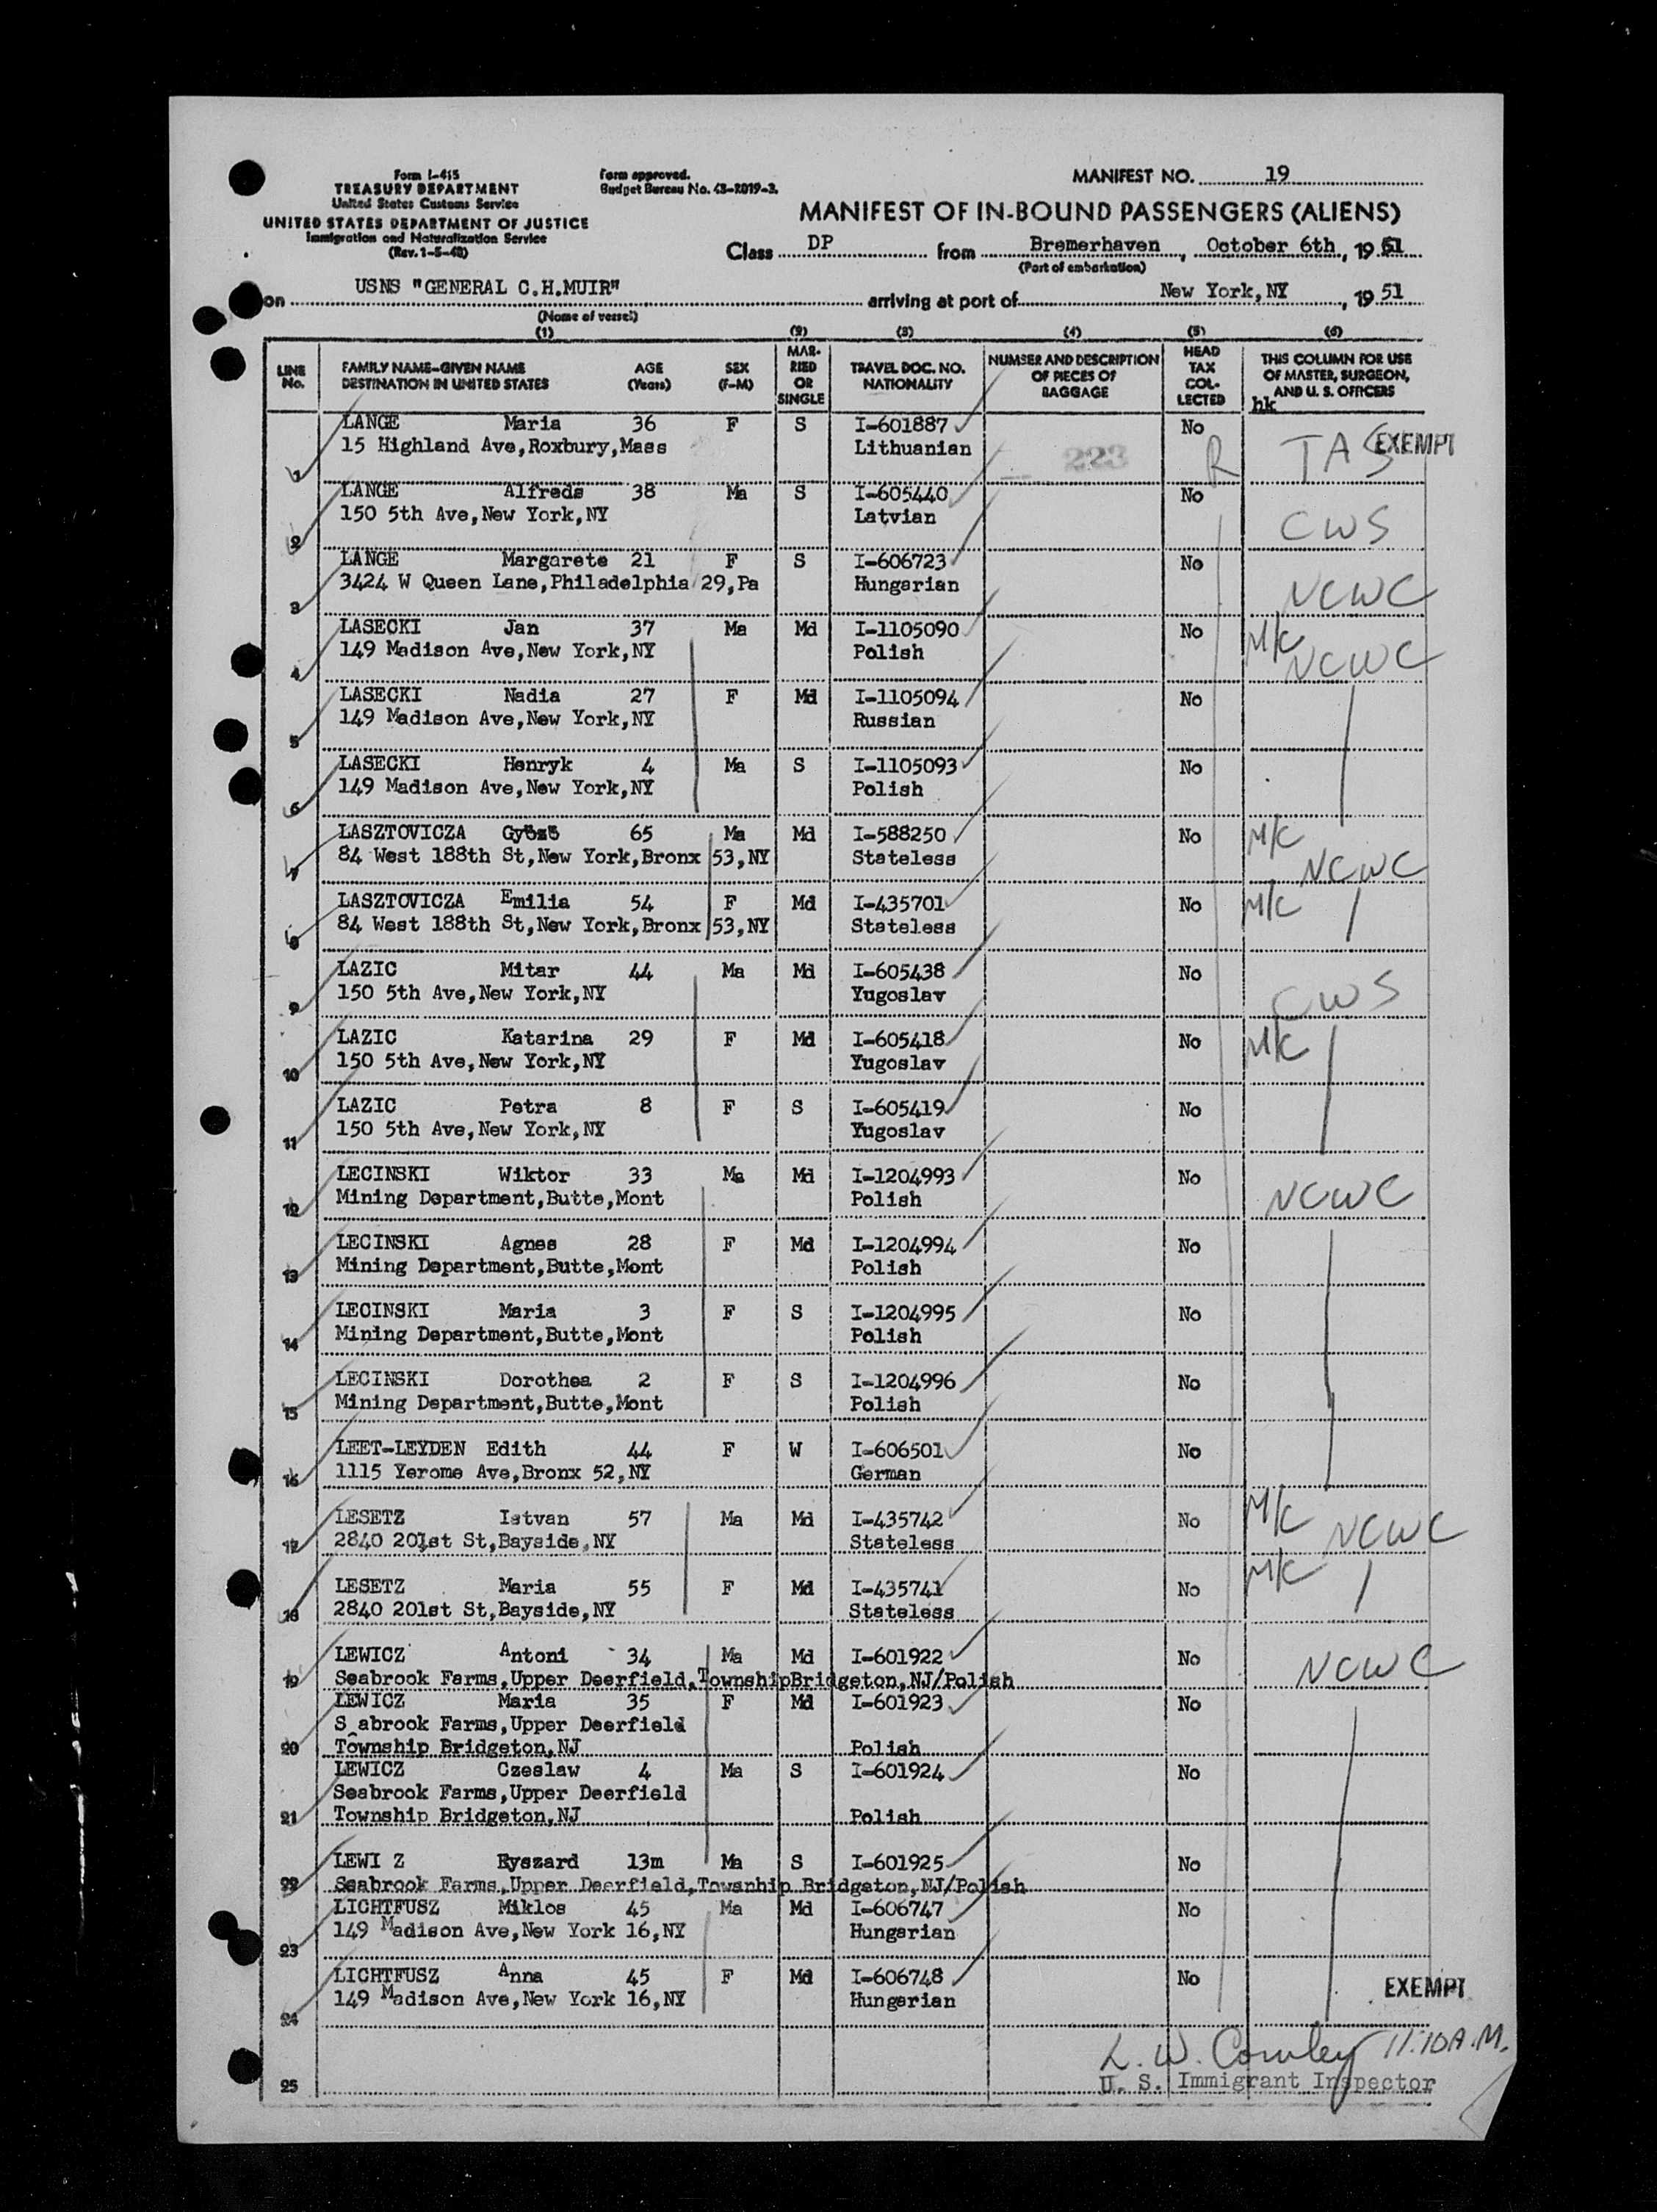 Form I-415
TREASURY DEPARTMENT
United States Customs Service
UNITED STATES DEPARTMENT OF JUSTICE
Immigration and Naturalization Service
(Rev. 1-5-48)
Form approved.
Budget Bureau No. 43-R019-3.
MANIFEST NO. 19
MANIFEST OF IN-BOUND PASSENGERS (ALIENS)
Class DP from Bremerhaven, October 6th, 1951
(Port of embarkation)
on USNS "GENERAL C.H.MUIR" arriving at port of New York,NY, 1951
(Name of vessel)
(1) (2) (3) (4) (5) (6)
LINE No. FAMILY NAME-GIVEN NAME DESTINATION IN UNITED STATES AGE (Years) SEX (F-M) MARRIED OR SINGLE TRAVEL DOC. NO. NATIONALITY NUMBER AND DESCRIPTION OF PIECES OF BAGGAGE HEAD TAX COLLECTED THIS COLUMN FOR USE OF MASTER, SURGEON, AND U. S. OFFICERS
hk
LANGE Maria 36 F S I-601887 No
1 15 Highland Ave,Roxbury,Mass Lithuanian 223 R TAS EXEMPT
LANGE Alfreds 38 Ma S I-605440 No
2 150 5th Ave,New York,NY Latvian CWS
LANGE Margarete 21 F S I-606723 No
3 3424 W Queen Lane,Philadelphia 29,Pa Hungarian NCWC
LASECKI Jan 37 Ma Md I-1105090 No M/C
4 149 Madison Ave,New York,NY Polish NCWC
LASECKI Nadia 27 F Md I-1105094 No
5 149 Madison Ave,New York,NY Russian
LASECKI Henryk 4 Ma S I-1105093 No
6 149 Madison Ave,New York,NY Polish
LASZTOVICZA Győző 65 Ma Md I-588250 No M/C
7 84 West 188th St,New York,Bronx 53,NY Stateless NCWC
LASZTOVICZA Emilia 54 F Md I-435701 No M/C
8 84 West 188th St,New York,Bronx 53,NY Stateless
LAZIC Mitar 44 Ma Md I-605438 No
9 150 5th Ave,New York,NY Yugoslav CWS
LAZIC Katarina 29 F Md I-605418 No M/C
10 150 5th Ave,New York,NY Yugoslav
LAZIC Petra 8 F S I-605419 No
11 150 5th Ave,New York,NY Yugoslav
LECINSKI Wiktor 33 Ma Md I-1204993 No
12 Mining Department,Butte,Mont Polish NCWC
LECINSKI Agnes 28 F Md I-1204994 No
13 Mining Department,Butte,Mont Polish
LECINSKI Maria 3 F S I-1204995 No
14 Mining Department,Butte,Mont Polish
LECINSKI Dorothea 2 F S I-1204996 No
15 Mining Department,Butte,Mont Polish
LEET-LEYDEN Edith 44 F W I-606501 No
16 1115 Yerome Ave,Bronx 52,NY German
LESETZ Istvan 57 Ma Md I-435742 No M/C
17 2840 201st St,Bayside,NY Stateless NCWC
LESETZ Maria 55 F Md I-435741 No M/C
18 2840 201st St,Bayside,NY Stateless
LEWICZ Antoni 34 Ma Md I-601922 No
19 Seabrook Farms,Upper Deerfield,TownshipBridgeton,NJ/Polish NCWC
LEWICZ Maria 35 F Md I-601923 No
S abrook Farms,Upper Deerfield
20 Township Bridgeton,NJ Polish
LEWICZ Czeslaw 4 Ma S I-601924 No
Seabrook Farms,Upper Deerfield
21 Township Bridgeton,NJ Polish
LEWI Z Ryszard 13m Ma S I-601925 No
22 Seabrook Farms,Upper Deerfield,Towsnhip Bridgeton,NJ/Polish
LICHTFUSZ Miklos 45 Ma Md I-606747 No
23 149 Madison Ave,New York 16,NY Hungarian
LICHTFUSZ Anna 45 F Md I-606748 No EXEMPT
24 149 Madison Ave,New York 16,NY Hungarian
L. W. Cowley 11:10 A.M.
25 U. S. Immigrant Inspector